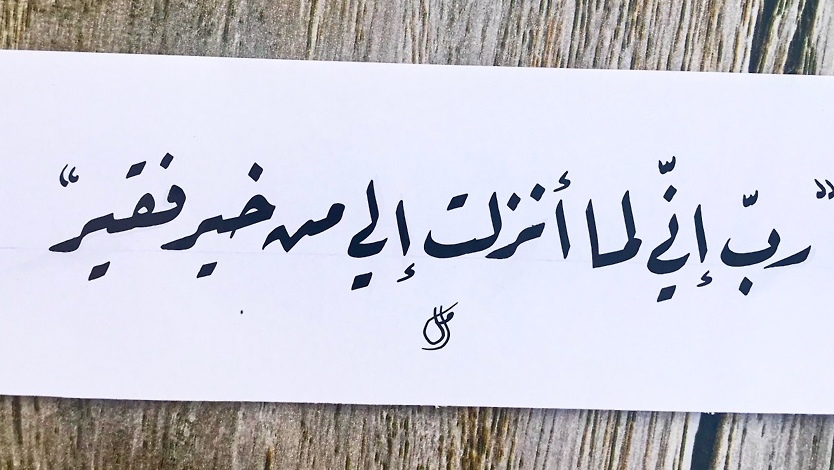 "ربّ إنّي لما أنزلت إلي من خير فقير"